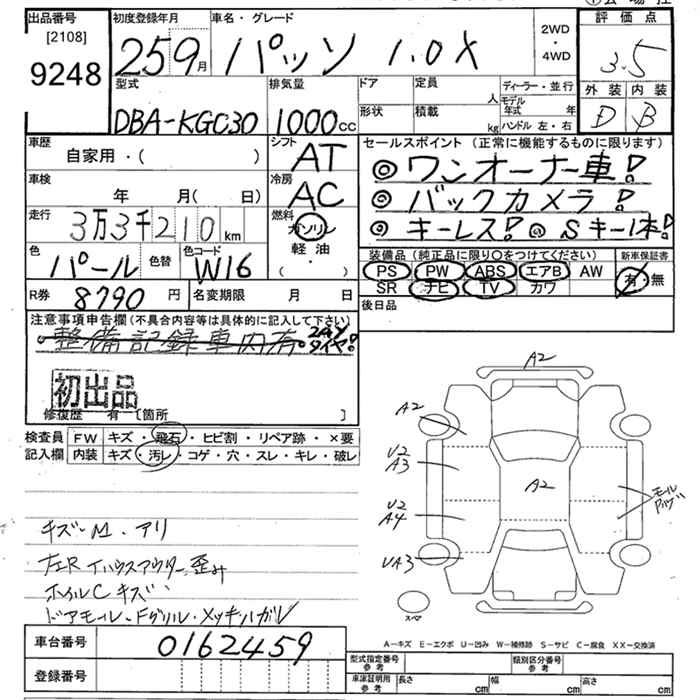 出品番号 初度登録年月 車名・グレード 2WD 評価点
[2108] 259月 パッソ 1.0X ・ 3.5
9248 4WD
型式 排気量 ドア 定員 人 ディーラー・並行 外装 内装
DBA-KGC30 1000cc 形状 積載 kg モデル年式 年 D B
ハンドル 左・右
車歴 シフト セールスポイント（正常に機能するものに限ります）
自家用・（ ） AT ◎ワンオーナー車!
車検 冷房 ◎バックカメラ!
年 月（ 日） AC ◎キーレス!◎Sキー1本!
走行 燃料
3万3千210km ガソリン
色 色替 色コード 軽油
パール W16 ・（ ）
装備品（純正品に限り〇をつけてください） 新車保証書
PS PW ABS エアB AW 有・無
SR ナビ TV カワ
R券 8790円 名変期限 月 日 後日品
注意事項申告欄（不具合内容等は具体的に記入して下さい）
・整備記録車内有・
タイヤ!
初出品
修復歴 有 [箇所 ]
検査員 FW キズ・飛石・ヒビ割・リペア跡・×要
記入欄 内装 キズ・汚レ・コゲ・穴・スレ・キレ・破レ
A2
A2
U2
A3
A2
U2
A4
モール
UA3
スペア
キズーM・アリ
ホイルCキズ
車台番号 0162459
登録番号
A－キズ E－エクボ U－凹み W－補修跡 S－サビ C－腐食 XX－交換済
型式指定番号 参考 類別区分番号 参考
車庫証明用 参考 長さ cm 幅 cm 高さ cm